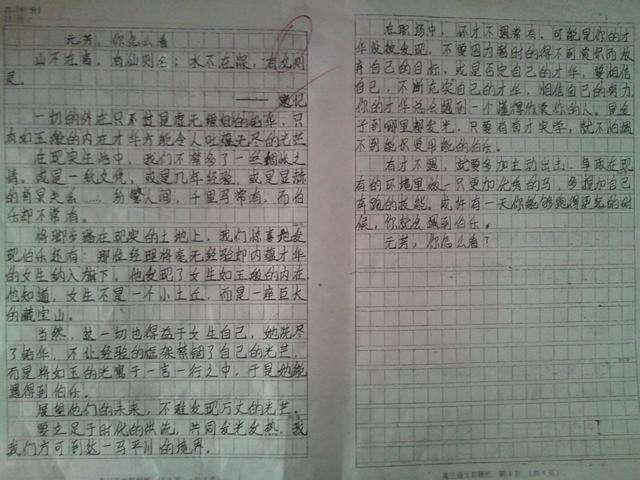 元芳，你怎么看
山不在高，有仙则名；水不在深，有龙则
灵。
——题记
一切的外在只不过是虚无缥缈的铅华，只
有如玉般的内在才华方能令人吐蕴无尽的光芒
在现实生活中，我们不常会了一丝
或是一纸文凭，或是几年经验，或是显赫
的背景关系……纷繁人间，千里马常有，而伯
乐却不常有。
将脚步踏在现实的土地上，我们惊喜地发
现伯乐还有：那位经理将毫无经验却内蕴才华
的女生纳入旗下，他发现了女生如玉般的内在
他知道，女生不是一个小土丘，而是一座巨大
的藏宝山。
当然，这一切也得益于女生自己，她洗尽
了铅华，不让经验的框架禁锢了自己的光芒，
而是将如玉的光寓于一言一行之中，于是她能
遇得到伯乐。
展望他们的未来，不难发现万丈的光芒。
要立足于时代的洪流，共同发光发热，我
我们方可到达一马平川的境界。
在职场中，怀才不遇常有，可能是你的才
华没被发现，不要因为暂时的得不到赏识而放
弃自己的目标，或是否定自己的才华，要相信
自己，不断充实自己的才华，相信自己的努力
你的才华总会遇到一个懂得欣赏你的人。是金
子到哪里都发光，只要有真才实学，就不怕遇
不到能识使用能的伯乐。
有才不遇，就要多加主动出击，争取在现
有的环境里做一只更加优秀的马，多提加自己
奔跑的技能。或许有一天你能够跑得更远的时
候，你就会遇到伯乐。
元芳，你怎么看？